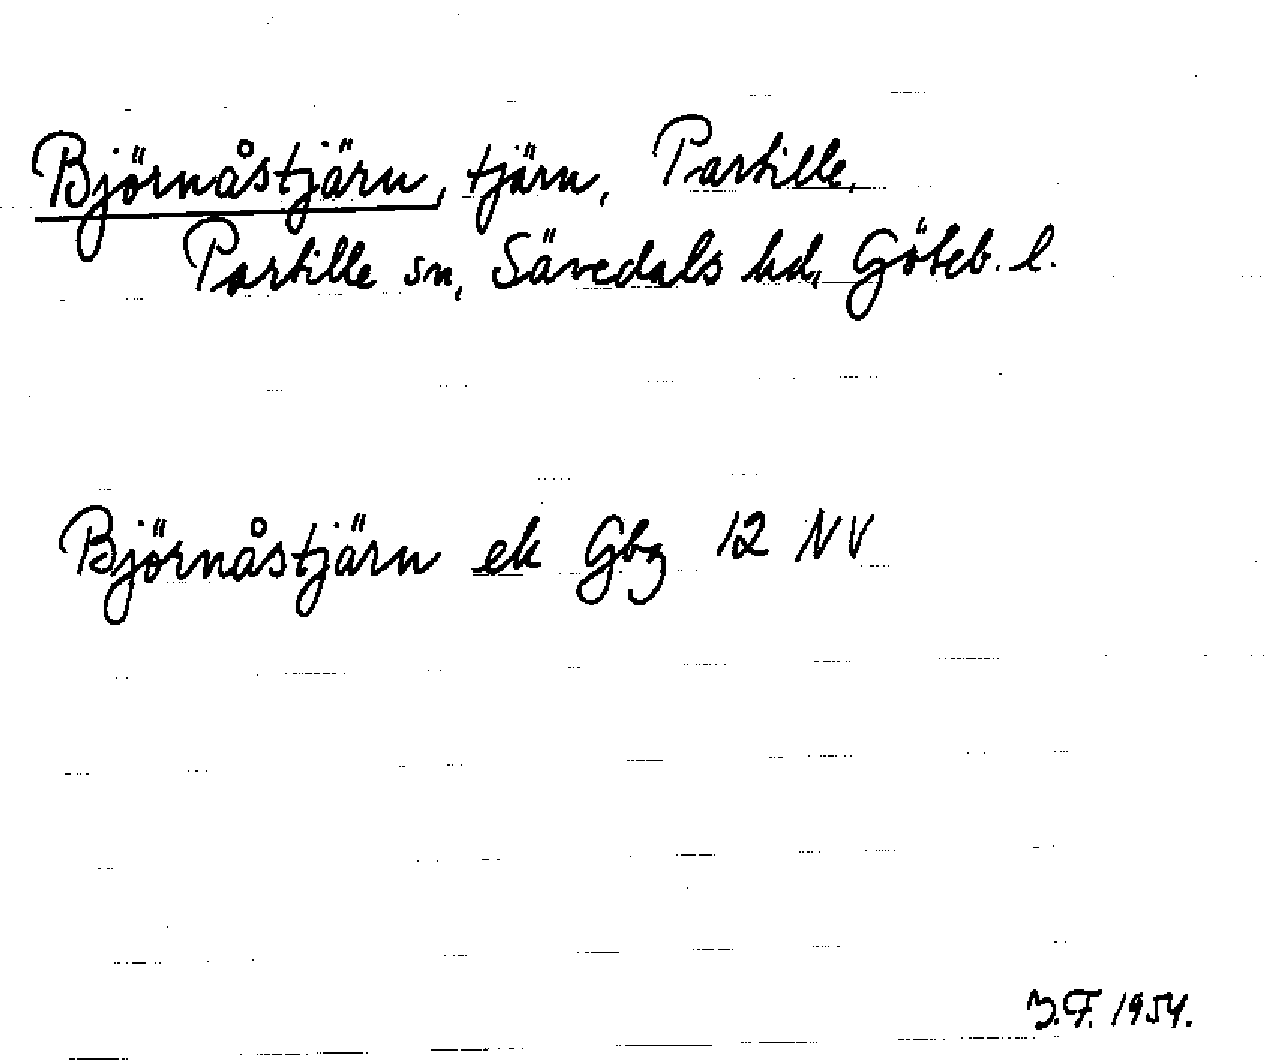 Björnåstjärn, tjärn, Partille,
Partille sn, Sävedals hd, Göteb. l.
Björnåstjärn ek Gbg 12 NV
J.F. 1954.